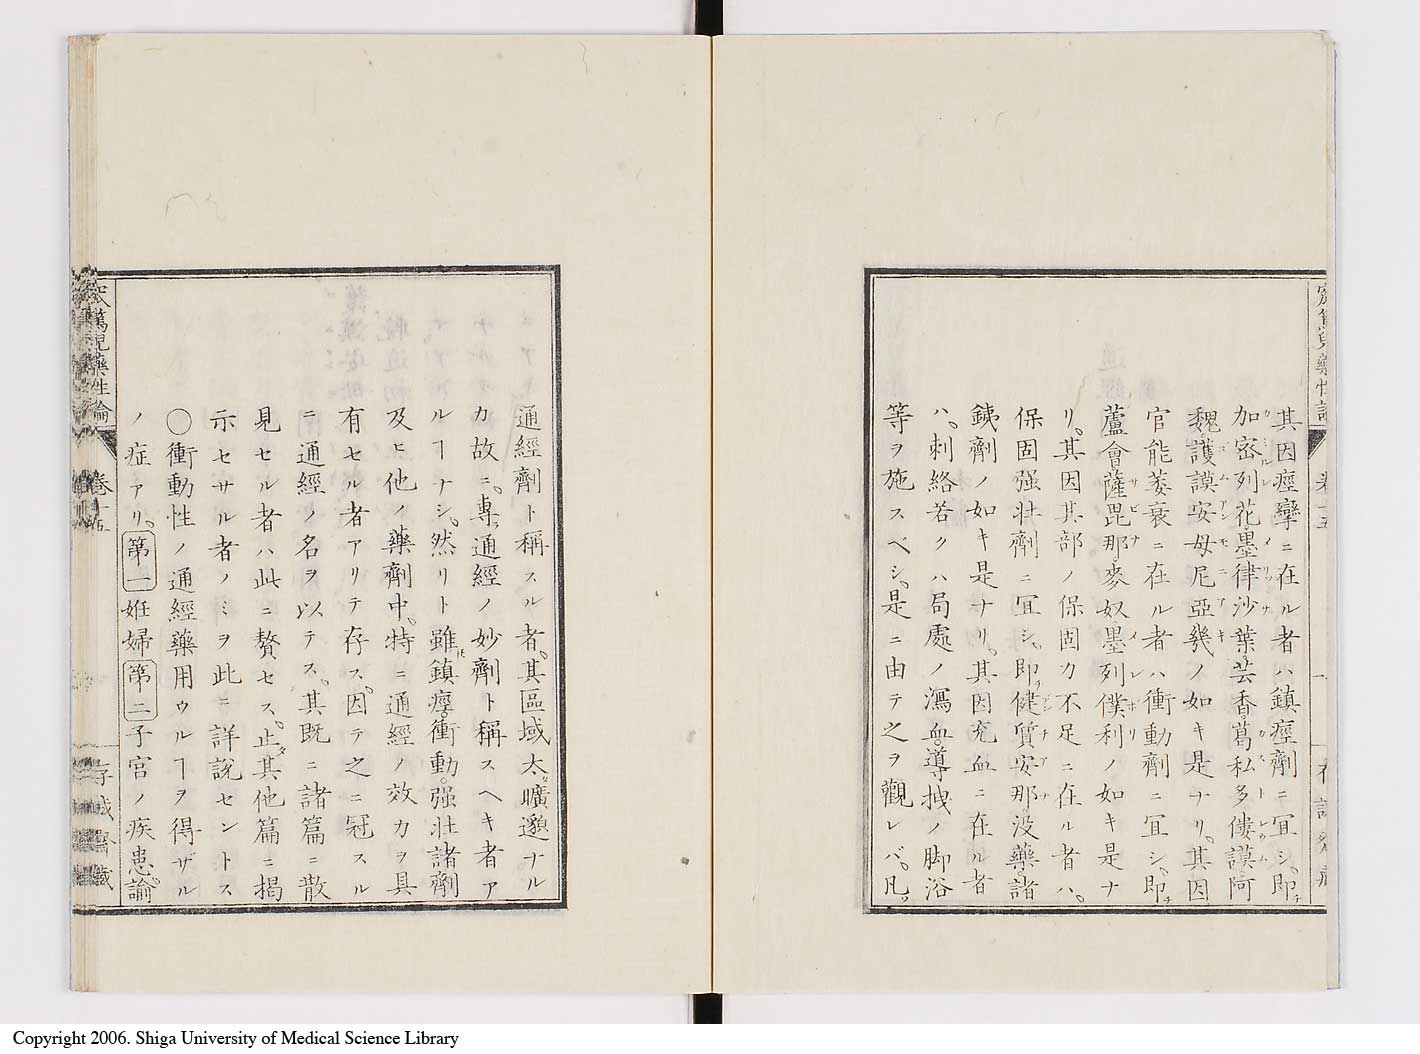 其因痙攣ニ在ル者ハ鎮痙劑ニ冝シ、即チ
加密列花、墨律沙葉、芸香、葛私多僂謨、阿
魏、護謨安母尼亞幾ノ如キ是ナリ、其因
官能萎衰ニ在ル者ハ衝動劑ニ冝シ、即チ
蘆會、薩毘那、麥奴墨列僕利ノ如キ是ナ
リ、其因其部ノ保固力不足ニ在ル者ハ、
保固强壯劑ニ冝シ、即チ健質安那、没藥、諸
銕劑ノ如キ是ナリ、其因充血ニ在ル者
ハ、刺絡若クハ局處ノ瀉血、導拽ノ脚浴
等ヲ施スベシ、是ニ由テ之ヲ觀レバ、凡ソ
通經劑ト稱スル者、其區域太タ曠邈ナル
カ故ニ、專ラ通經ノ妙劑ト稱スヘキ者ア
ルヿナシ、然リト雖モ鎮痙、衝動、强壯諸劑
及ヒ他ノ藥劑中、特ニ通經ノ效力ヲ具
有セル者アリテ存ス、因テ之ニ冠スル
ニ通經ノ名ヲ以テス、其既ニ諸篇ニ散
見セル者ハ此ニ贅セス、止タ其他篇ニ揭
示セサル者ノミヲ此ニ詳說セントス
○衝動性ノ通經藥用ウルヿヲ得ザル
ノ症アリ、第一姙婦第二子宮ノ疾患、論
窊篤兒藥性論
卷十五
存誠齋藏
Copyright 2006. Shiga University of Medical Science Library